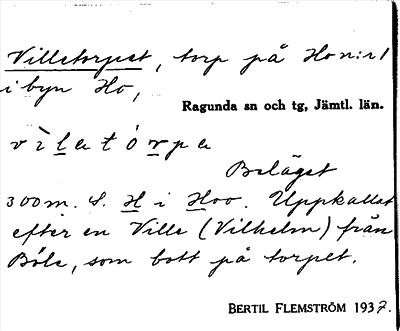 Villetorpet, torp på Ho n:r 1
i byn Ho,
Ragunda sn och tg, Jämtl. län.
vìlet órpa
Beläget
300 m. S. H i Hoo. Uppkallat
efter en Ville (Vilhelm) från
Böle, som bott på torpet.
BERTIL FLEMSTRÖM 1937.